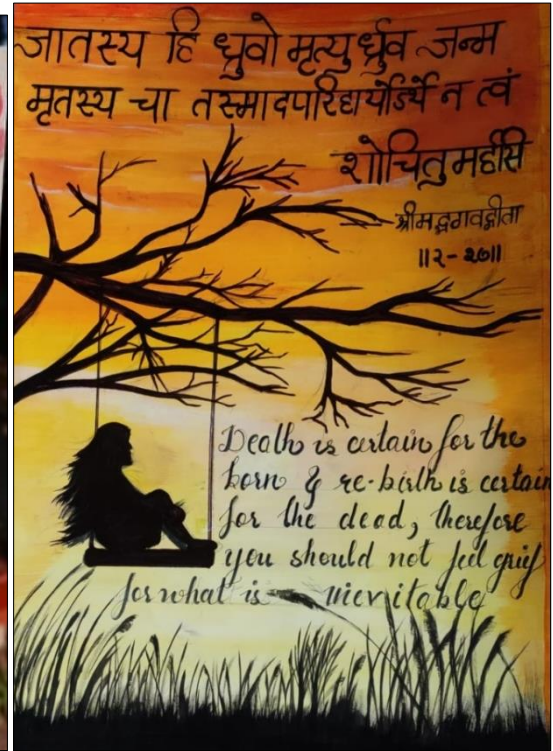 जातस्य हि ध्रुवो मृत्यु र्ध्रुव जन्म
मृतस्य चा तस्मादपरिहार्येऽर्थे न त्वं
शोचितुमर्हसि
श्रीमद्भगवद्गीता
॥२-२७॥
Death is certain for the
born & re-birth is certain
for the dead, therefore
you should not feel grief
for what is inevitable